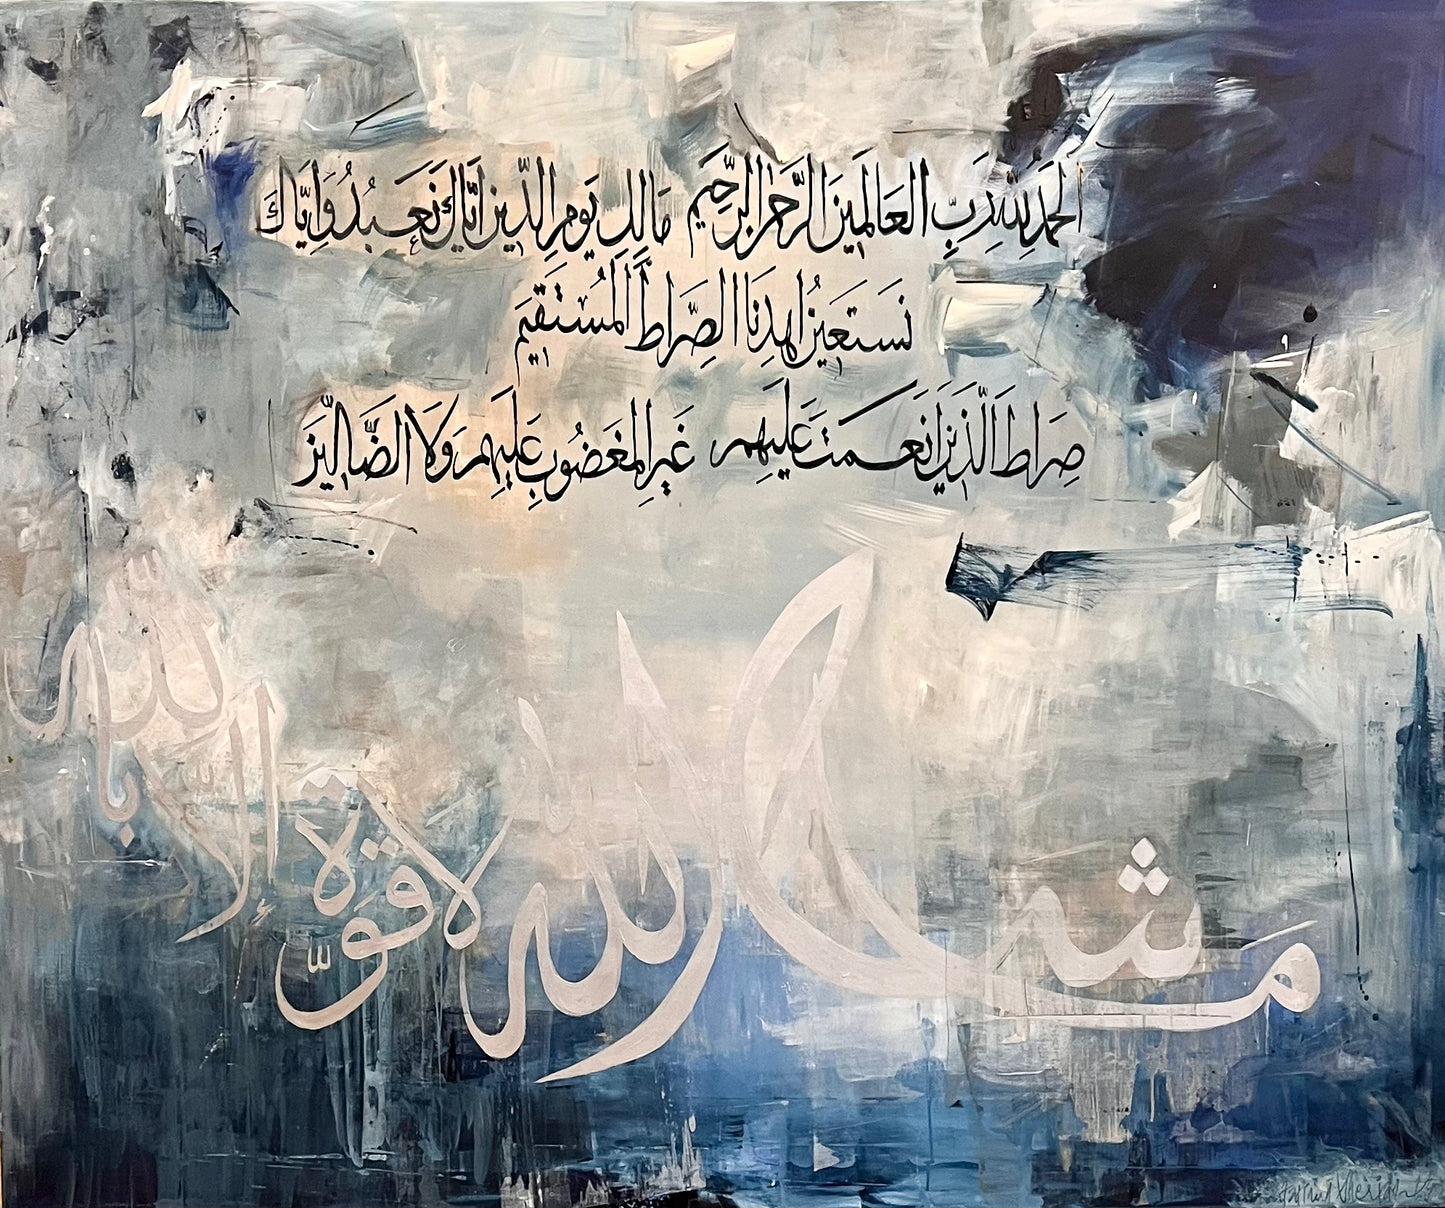 الحمدُ لِلّٰهِ رَبِّ العَالَمِينَ الرَّحمٰنِ الرَّحِيمِ مَالِكِ يَومِ الدِّينِ إيَّاكَ نَعبُدُ وَإيَّاكَ
نَستَعِينُ اهدِنَا الصِّرَاطَ المُستَقِيمَ
صِرَاطَ الَّذِينَ أنعَمتَ عَلَيهِم غَيرِ المَغضُوبِ عَلَيهِم وَلَا الضَّالِّينَ
مَا شَاء الله لا قوّة إلّا بالله